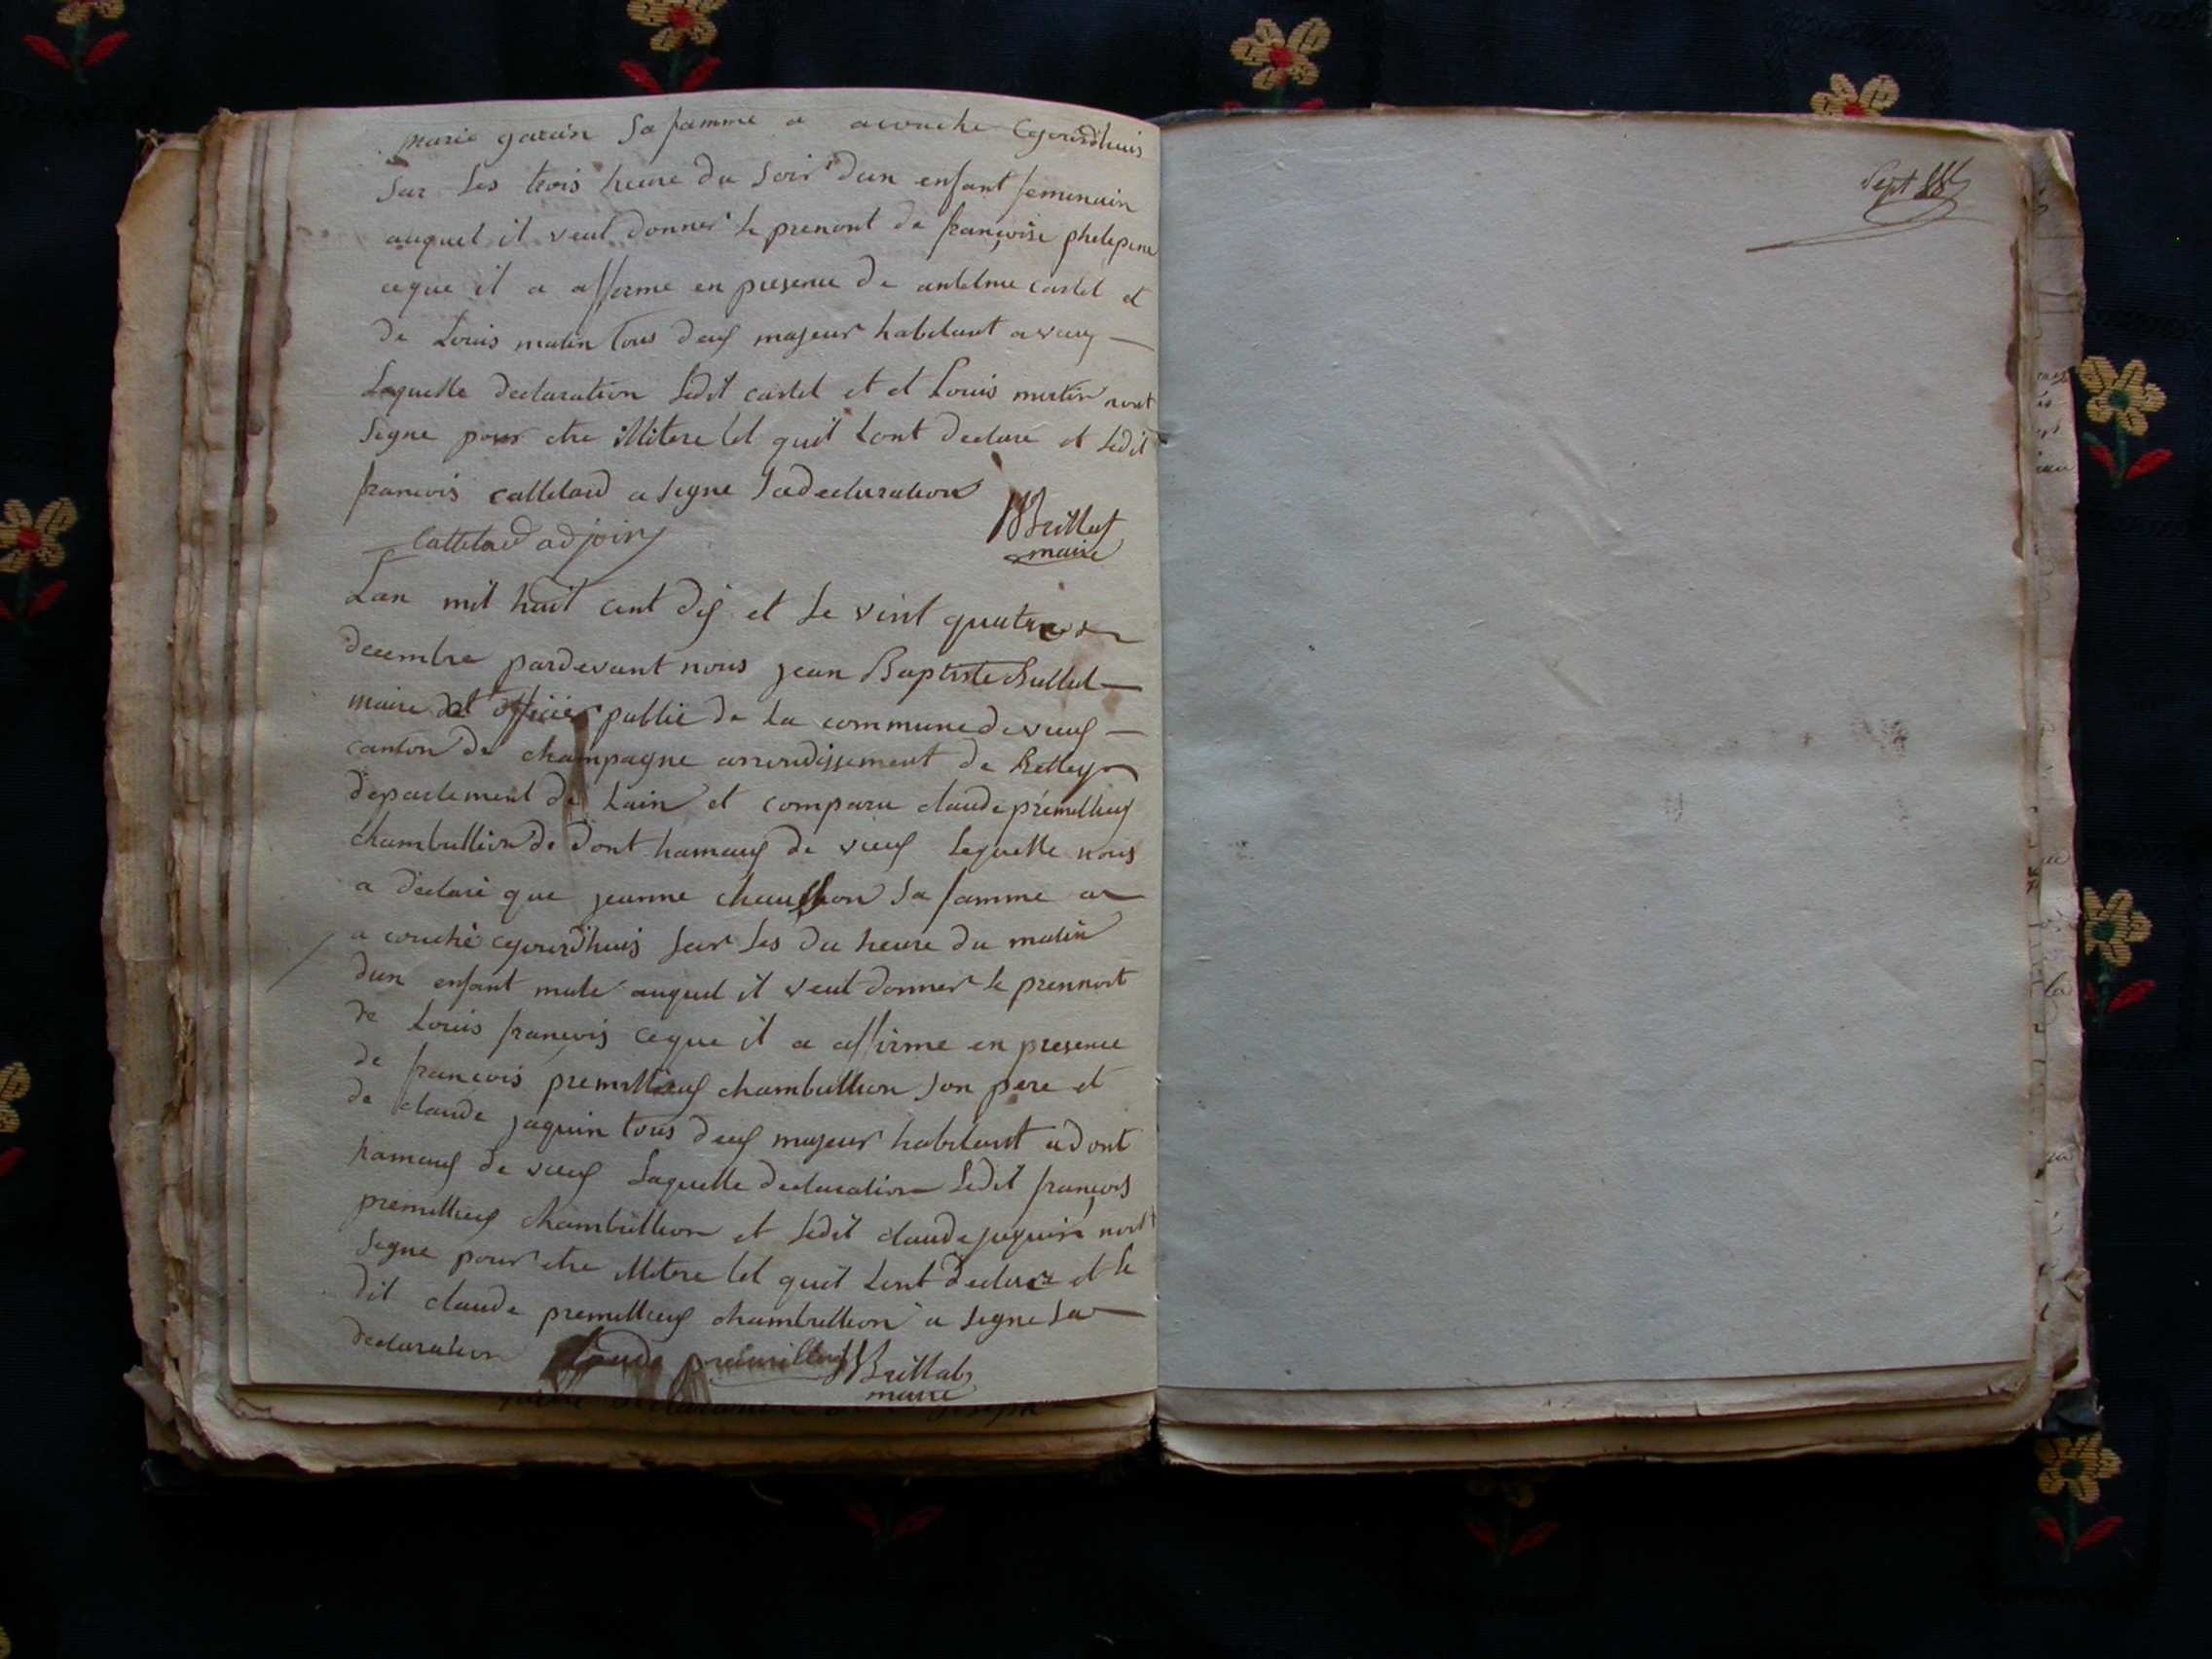 marie garin sa famme a acouche cejourdhuis
sur les trois heure du soir dun enfant femenain
auquel il veut donner le prenont de françoise phelepine
ceque il a afferme en presence de antelme castel et
de Louis matin tous deux majeur habitant a vieux
Laquelle declaration ledit castel et et Louis martin nont
segne pour etre illitere tel quil lont declare et ledit
francois cattelard a segne sa declaration
cattelard adjoint
Brillat
maire
Lan mil huit cent dix et le vint quatre
decembre pardevant nous jean Baptiste
maire et officier public de la commune de vieux
canton de champagne arrondissement de Belley
departement de lain et comparu claude premillieux
chambullion de dont hamaux de vieux lequelle nous
a declaré que jeanne sa famme a
a couché cejourdhuis sur les heure du matin
dun enfant male auquel il veut donner le prennont
de Louis françois ceque il a affirme en presence
de francois premillieux chambullion son pere et
de claude jaquin tous deux majeur habitant a dont
hamaux de vieux Laquelle declaration ledit françois
premillieux chambullion et ledit claude jaquin nont
segne pour etre illitere tel quil lont declare et le
dit claude premillieux chambullion a segne sa
declaration
claude premillieux Brillat
maire
Sept